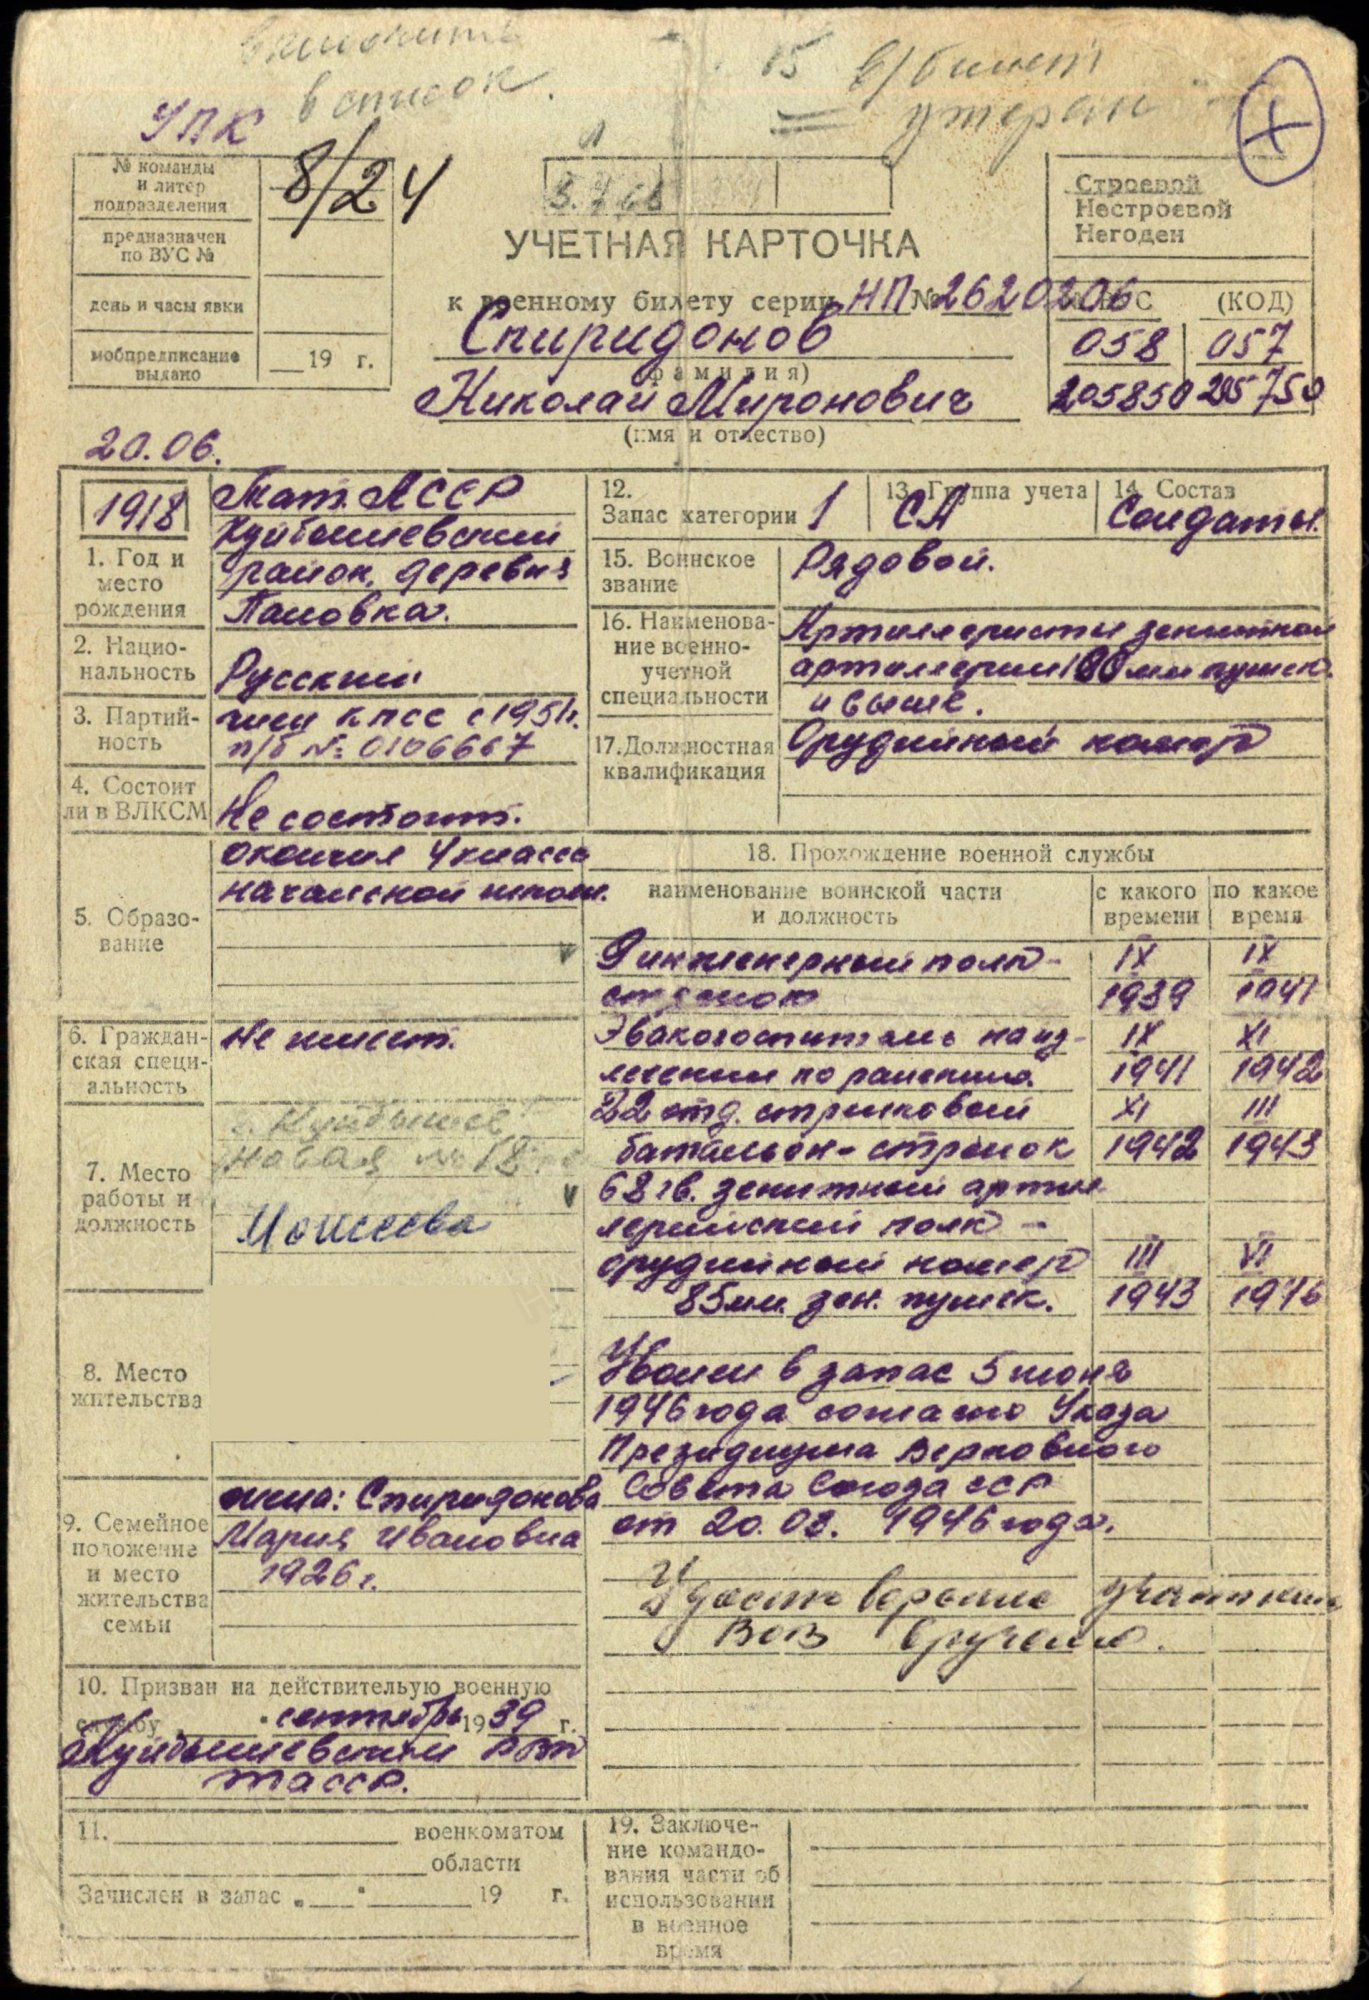 включить
в список.
15 в/билет
утерян
УПК
№ команды
и литер
подразделения
8/24
предназначен
по ВУС №
день и часы явки
мобпредписание
выдано
19 г.
УЧЕТНАЯ КАРТОЧКА
к военному билету серии НП № 2620206
Спиридонов
(фамилия)
Николай Миронович
(имя и отчество)
Строевой
Нестроевой
Негоден
ВУС (КОД)
058 057
205850 205750
20.06.
1918
1. Год и
место
рождения
Тат. АССР
Куйбышевский
район, деревня
Памовка.
2. Нацио-
нальность
Русский
3. Партий-
ность
член КПСС с 1951г.
п/б № 0106667
4. Состоит
ли в ВЛКСМ
Не состоит.
5. Образо-
вание
окончил 4 класса
начальной школы.
6. Граждан-
ская специ-
альность
Не имеет.
7. Место
работы и
должность
г. Куйбышев
Новая
Моисеева
8. Место
жительства
9. Семейное
положение
и место
жительства
семьи
жена: Спиридонова
Мария Ивановна
1926 г.
10. Призван на действительную военную
службу „ " сентябрь 1939 г.
Куйбышевским РВК
ТАССР.
11. военкоматом
области
Зачислен в запас „ " 19 г.
12.
Запас категории 1
13. Группа учета
СА
14. Состав
Солдаты.
15. Воинское
звание
Рядовой.
16. Наименова-
ние военно-
учетной
специальности
Артиллеристы зенитной
артиллерии 100 мм пушек
и выше.
17. Должностная
квалификация
Орудийный номер
18. Прохождение военной службы
наименование воинской части
и должность
с какого
времени
по какое
время
9 инженерный полк -
стрелок
IX 1939 IX 1941
Эвакогоспиталь на из-
лечении по ранению.
IX 1941 XI 1942
22 отд. стрелковый
батальон - стрелок
XI 1942 III 1943
68 гв. зенитный артил
лерийский полк -
орудийный номер
85 мм. зен. пушек.
III 1943 VI 1946
Уволен в запас 5 июня
1946 года согласно Указа
Президиума Верховного
Совета Союза ССР
от 20.03. 1946 года.
Удостоверение участника
ВОВ вручено.
19. Заключе-
ние командо-
вания части об
использовании
в военное
время